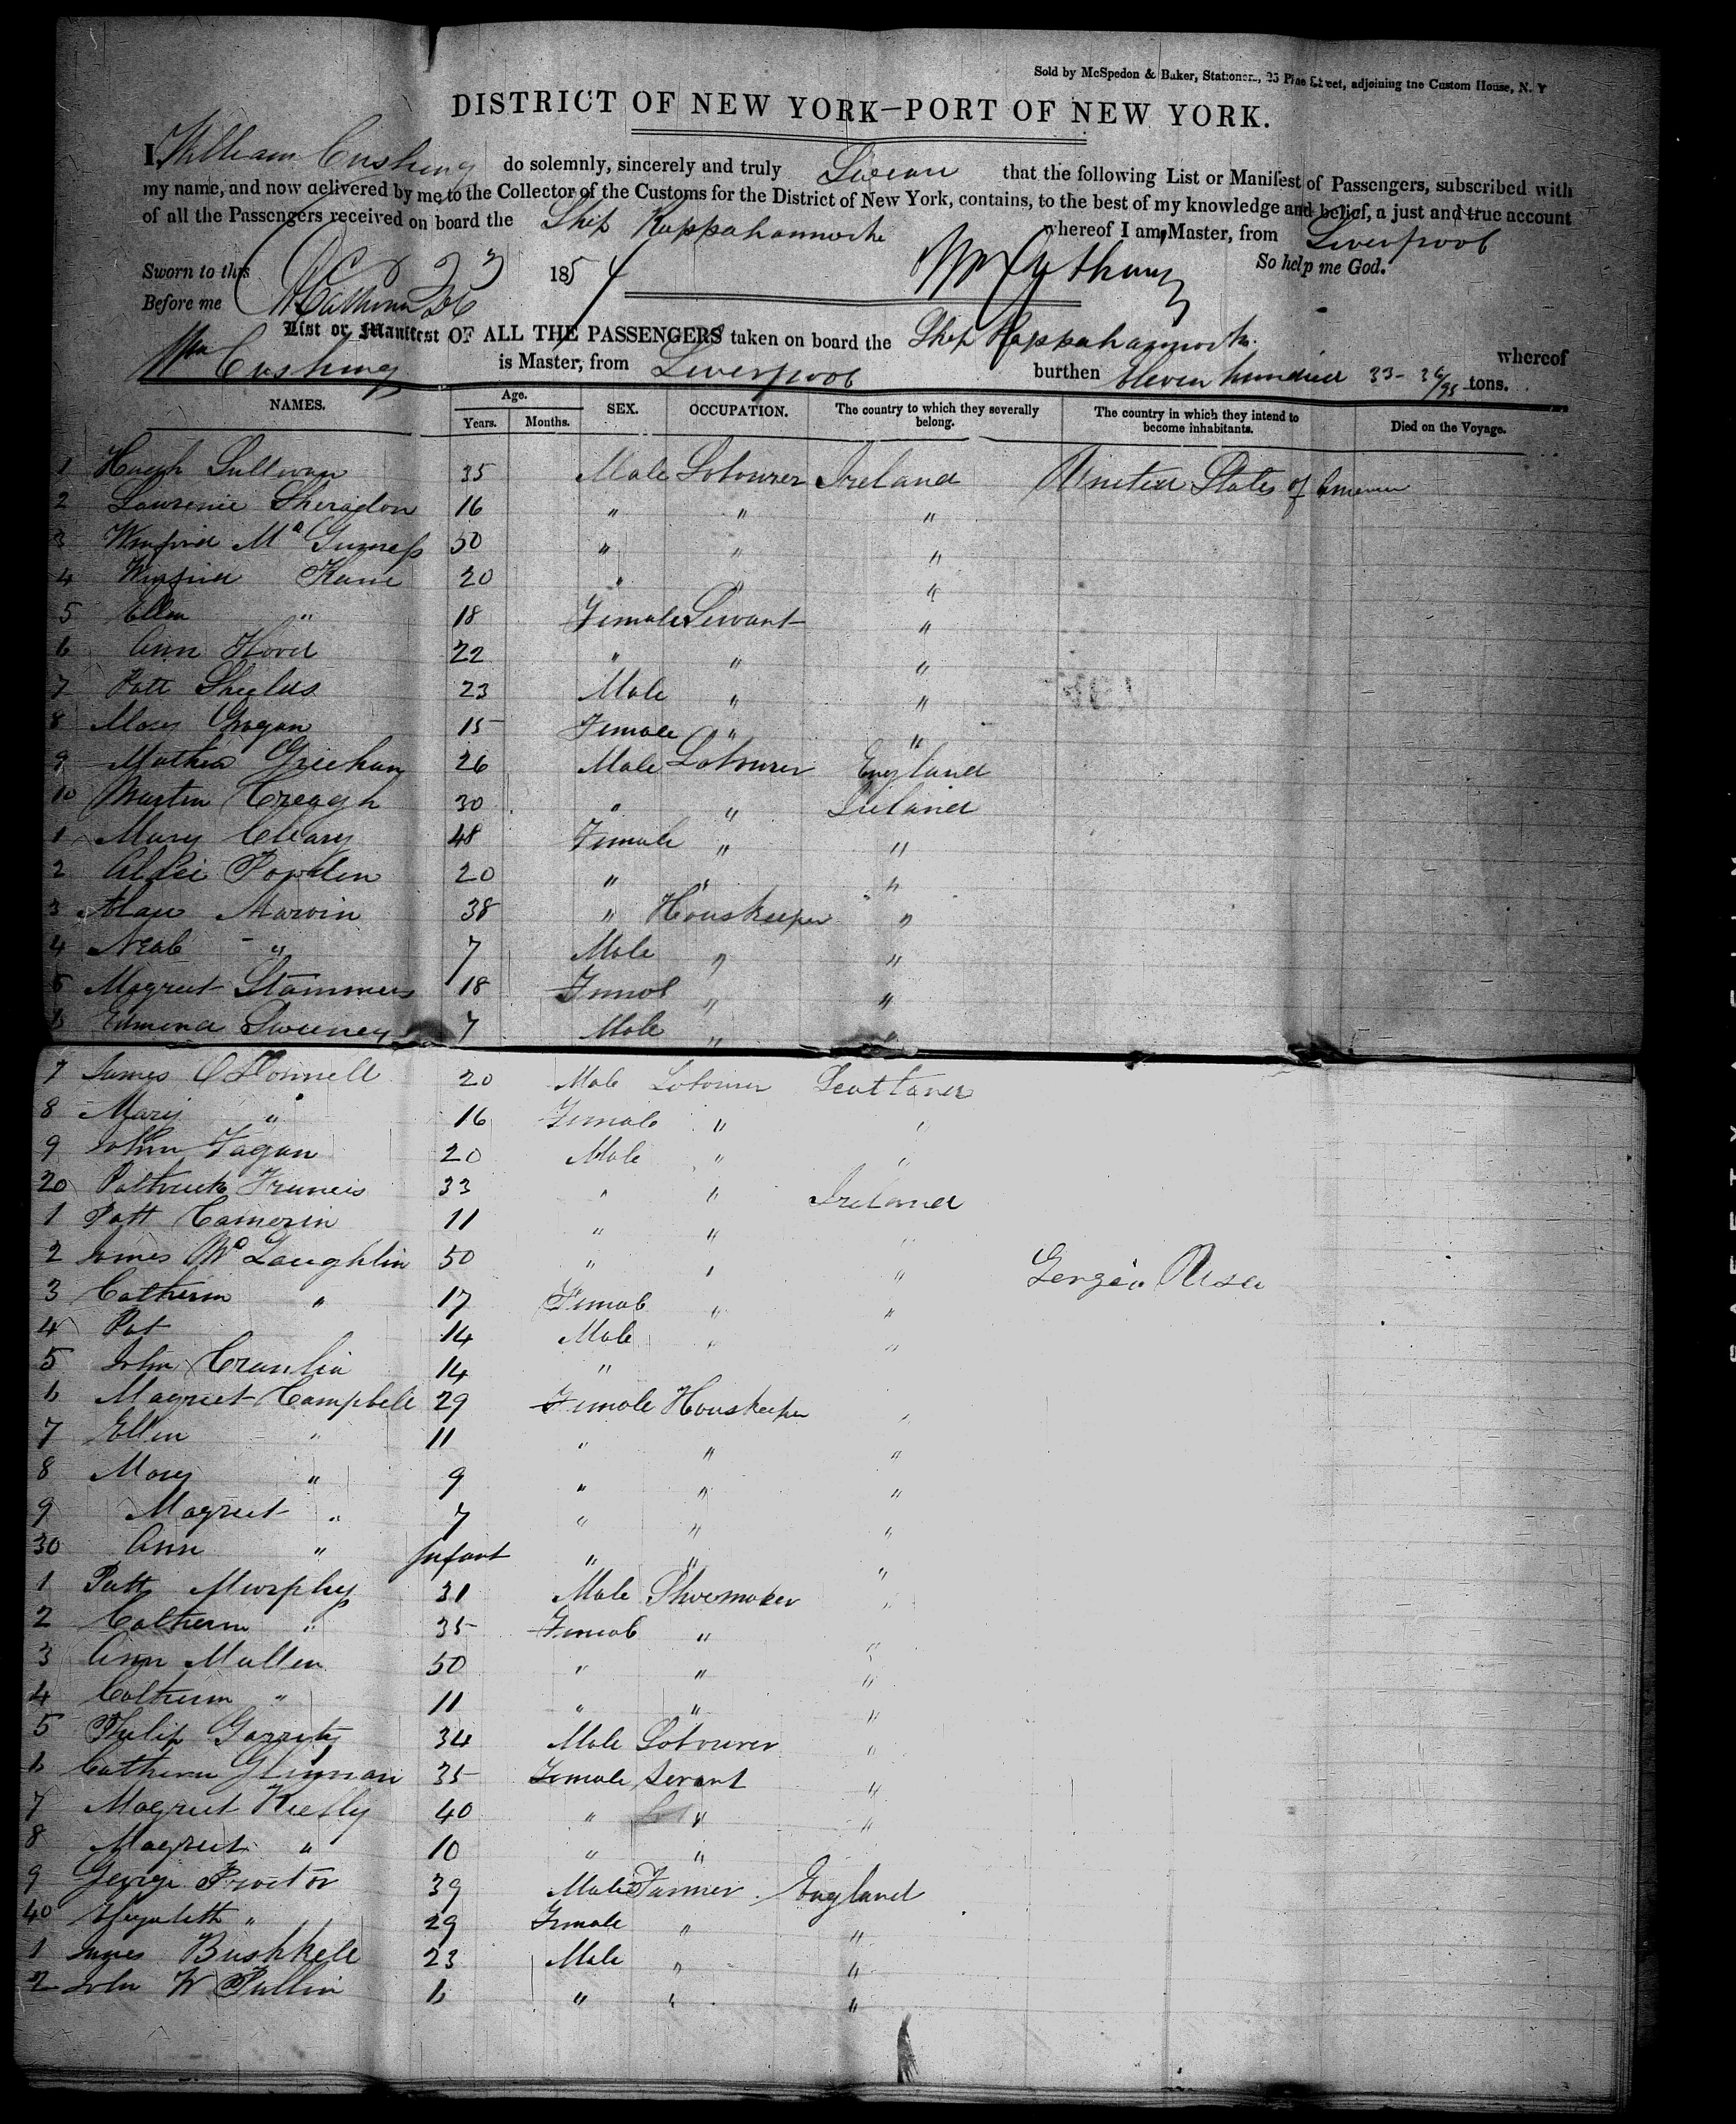 Sold by McSpedon & Baker, Stationers, 25 Pine Street, adjoining the Custom House, N. Y
DISTRICT OF NEW YORK—PORT OF NEW YORK.
I, William Cushing do solemnly, sincerely and truly Swear that the following List or Manifest of Passengers, subscribed with
my name, and now delivered by me to the Collector of the Customs for the District of New York, contains, to the best of my knowledge and belief, a just and true account
of all the Passengers received on board the Ship Rappahannock whereof I am Master, from Liverpool
Sworn to this 23 1854 Wm Cushing So help me God.
Before me
List or Manifest OF ALL THE PASSENGERS taken on board the Ship Rappahannock whereof
Wm Cushing is Master, from Liverpool burthen Eleven hundred 33- 36/95 tons.
NAMES. Age. Years. Months. SEX. OCCUPATION. The country to which they severally belong. The country in which they intend to become inhabitants. Died on the Voyage.
1 Hugh Sullivan 35 Male Labourer Ireland United States of America
2 Lawrence Sheradon 16 " " "
3 Winfred Mc Guness 50 " " "
4 Winfred Kane 20 " "
5 Ellen " 18 Female Servant "
6 Ann 22 " " "
7 Patt Shields 23 Male " "
8 Mary Grogan 15 Female " "
9 Mathew Greehan 26 Male Labourer England
10 Martin Creagh 30 " " Ireland
1 Mary Cleary 48 Female " "
2 20 " " "
3 38 " Houskeeper "
4 " 7 Male " "
5 Magreet Stammers 18 Femal " "
6 Edmond Sweeney 7 Male " "
7 James O'Donnell 20 Male Labourer Scotland
8 Mary " 16 Female " "
9 John Fagan 20 Male " "
20 Pathrick Francis 33 " " Ireland
1 Patt Camerin 11 " " "
2 James Mc Laughlin 50 " " " Usa
3 Catherin " 17 Female " "
4 Pat 14 Male " "
5 John 14 "
6 Magreet Campbell 29 Female Houskeeper "
7 Ellen " 11 " " "
8 Mary " 9 " " "
9 Magreet " 7 " " "
30 Ann " Infant " " "
1 Patt Murphy 31 Male Shoemaker "
2 Catherin " 35 Female " "
3 Ann Mullen 50 " " "
4 Catherin " 11 " " "
5 Philip Garraty 34 Male Labourer "
6 Catherin 35 Female Servant "
7 Magreet Kielly 40 " " "
8 Magreet " 10 " "
9 George Proctor 39 Male Farmer England
40 " 29 Female " "
1 James Bushkell 23 Male " "
2 John W Pullin 6 " " "